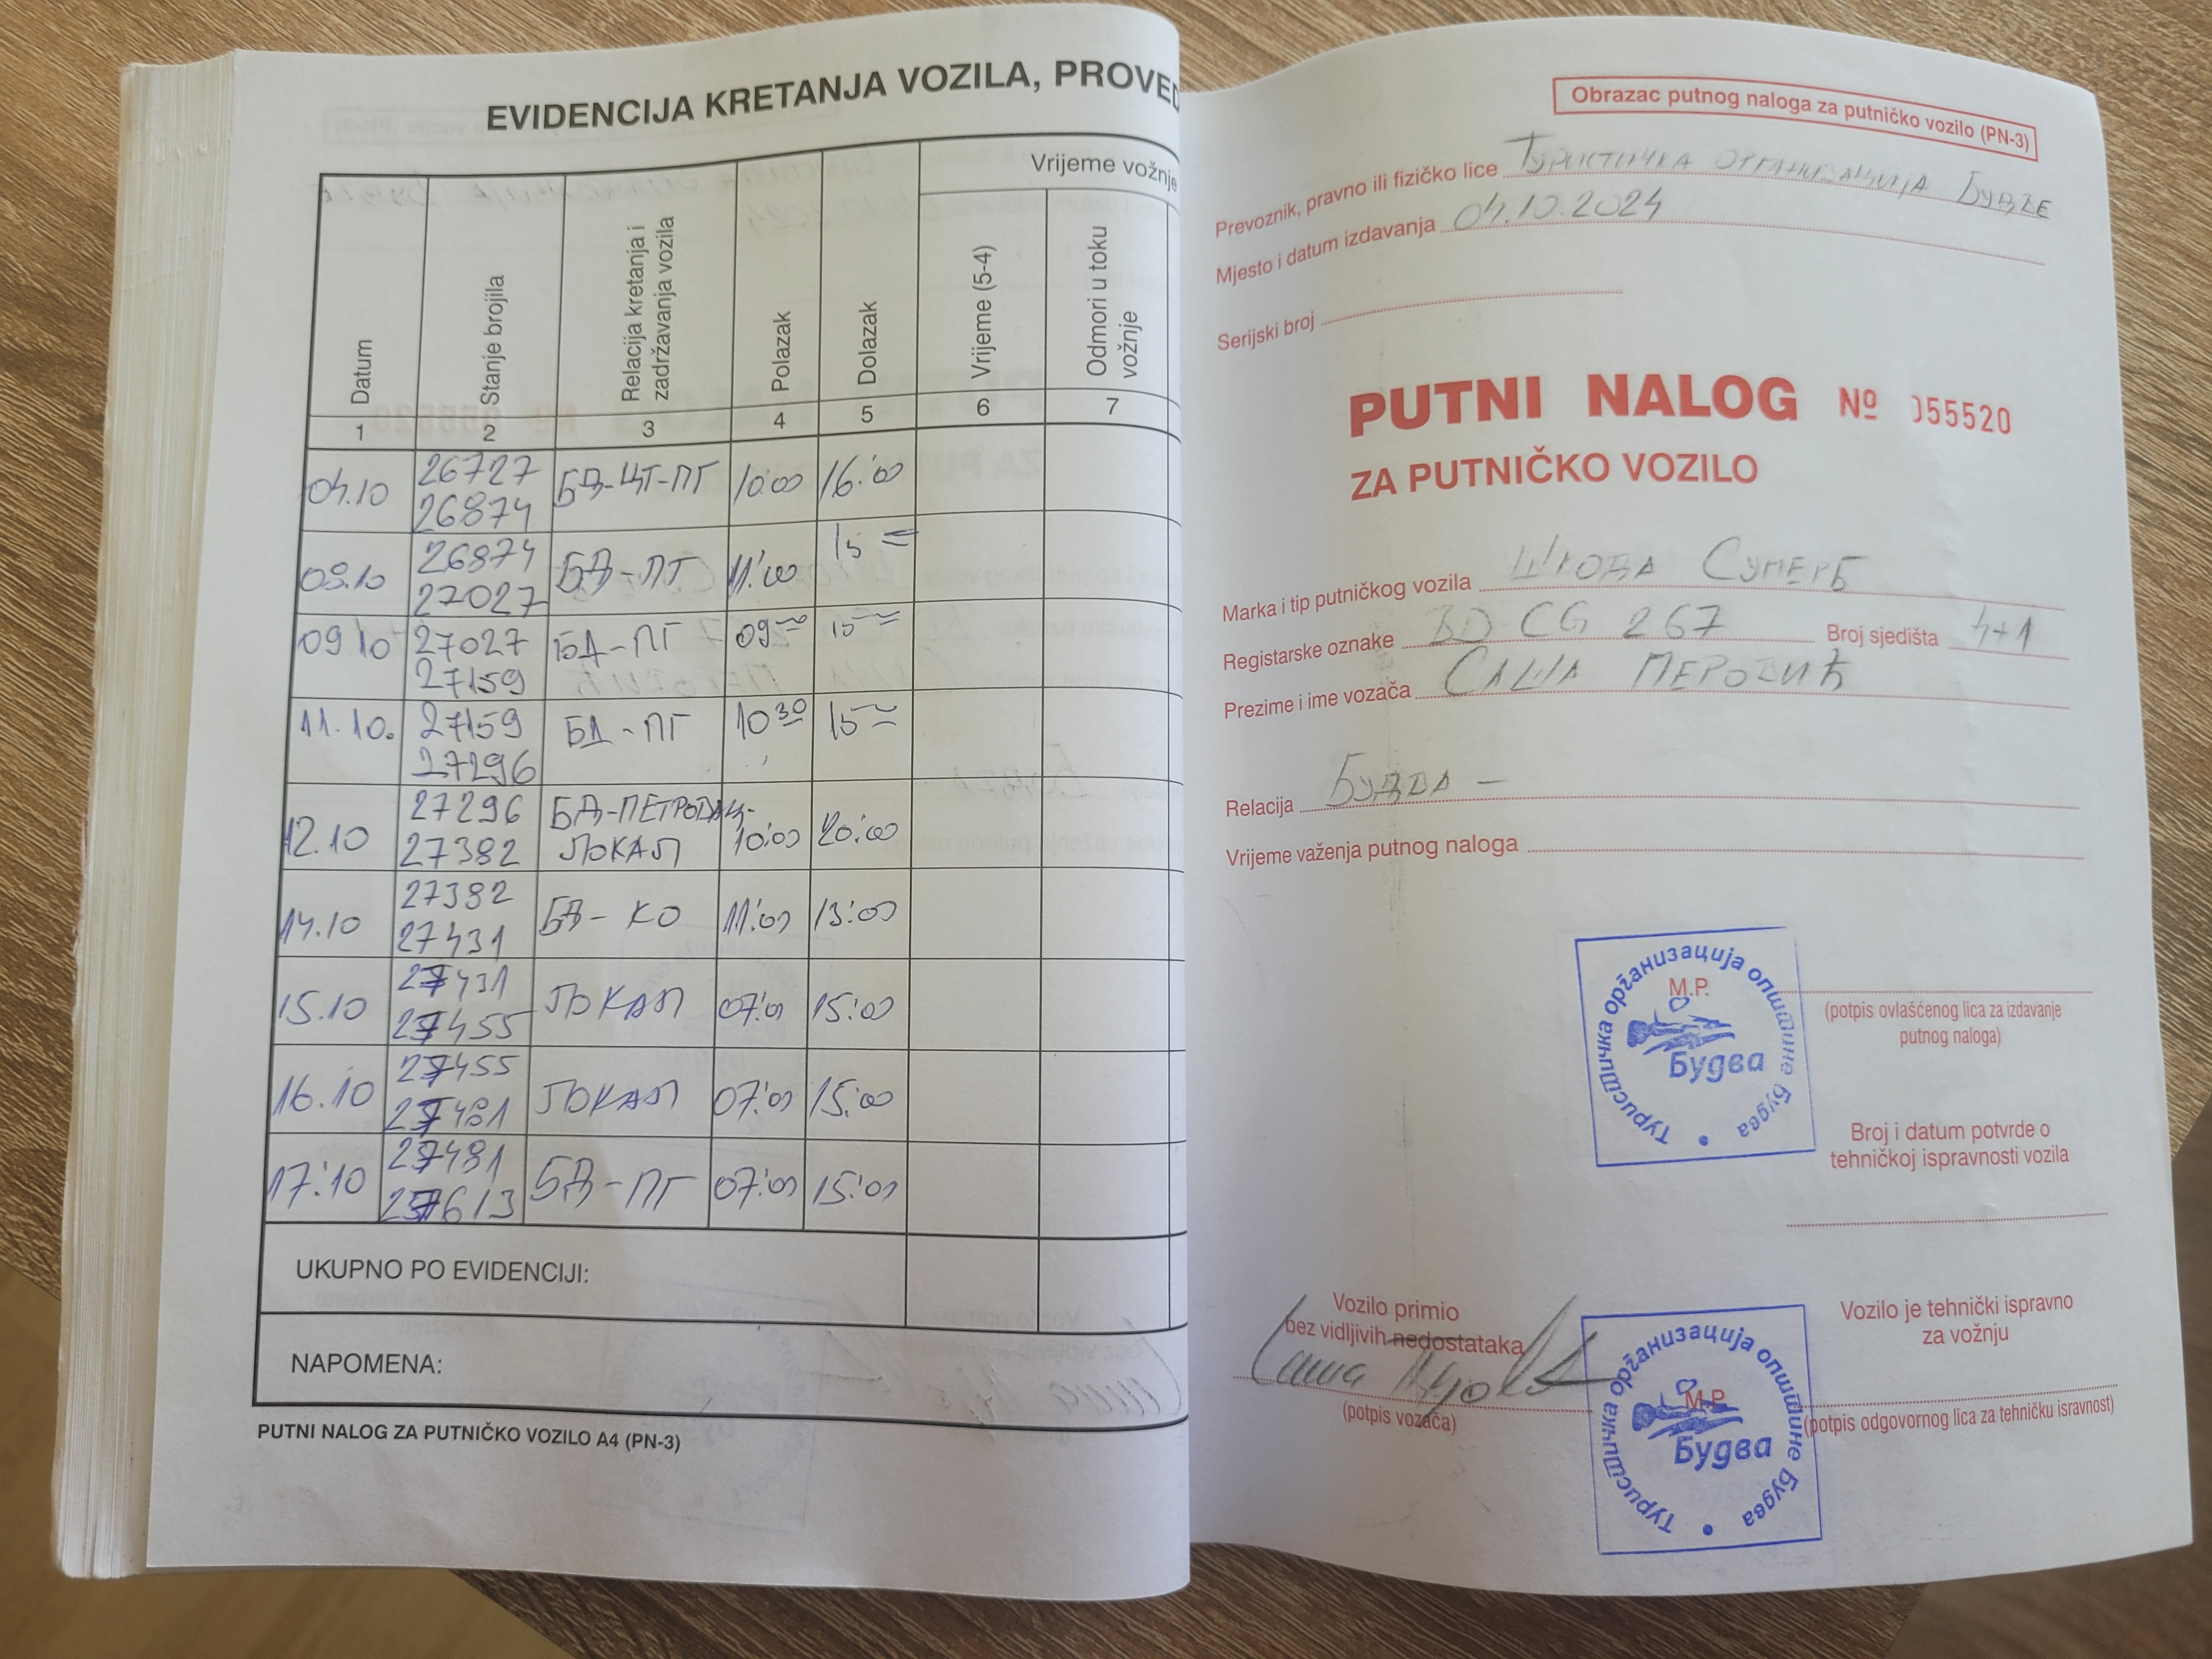 EVIDENCIJA KRETANJA VOZILA, PROVED
Datum
Stanje brojila
Relacija kretanja i
zadržavanja vozila
Polazak
Dolazak
Vrijeme vožnje
Vrijeme (5-4)
Odmori u toku
vožnje
1 2 3 4 5 6 7
04.10 26727 БД-ЦТ-ПГ 10:00 16:00
26874
26874 БД-ПГ 11:00 15
27027
09 10 27027 БД-ПГ 09 15
27159
11.10. 27159 БД-ПГ 10 30 15
27296
12.10 27296 БД-ПЕТРОВАЦ- 10:00 20:00
27382 ЛОКАЛ
14.10 27382 БД-КО 11:00 13:00
27431
15.10 27431 ЛОКАЛ 07:00 15:00
27455
16.10 27455 ЛОКАЛ 07:00 15:00
27481
17.10 27481 БД-ПГ 07:00 15:00
27613
UKUPNO PO EVIDENCIJI:
NAPOMENA:
PUTNI NALOG ZA PUTNIČKO VOZILO A4 (PN-3)
Obrazac putnog naloga za putničko vozilo (PN-3)
Prevoznik, pravno ili fizičko lice Туристичка организација Будве
Mjesto i datum izdavanja 04.10.2024
Serijski broj
PUTNI NALOG № 055520
ZA PUTNIČKO VOZILO
Marka i tip putničkog vozila Шкода Суперб
Registarske oznake BD CG 267 Broj sjedišta 4+1
Prezime i ime vozača Саша Перовић
Relacija Будва -
Vrijeme važenja putnog naloga
Туристичка организација општине Будва
М.Р.
Будва
(potpis ovlašćenog lica za izdavanje
putnog naloga)
Broj i datum potvrde o
tehničkoj ispravnosti vozila
Vozilo primio
bez vidljivih nedostataka
Саша
(potpis vozača)
Туристичка организација општине Будва
М.Р.
Будва
Vozilo je tehnički ispravno
za vožnju
(potpis odgovornog lica za tehničku isravnost)